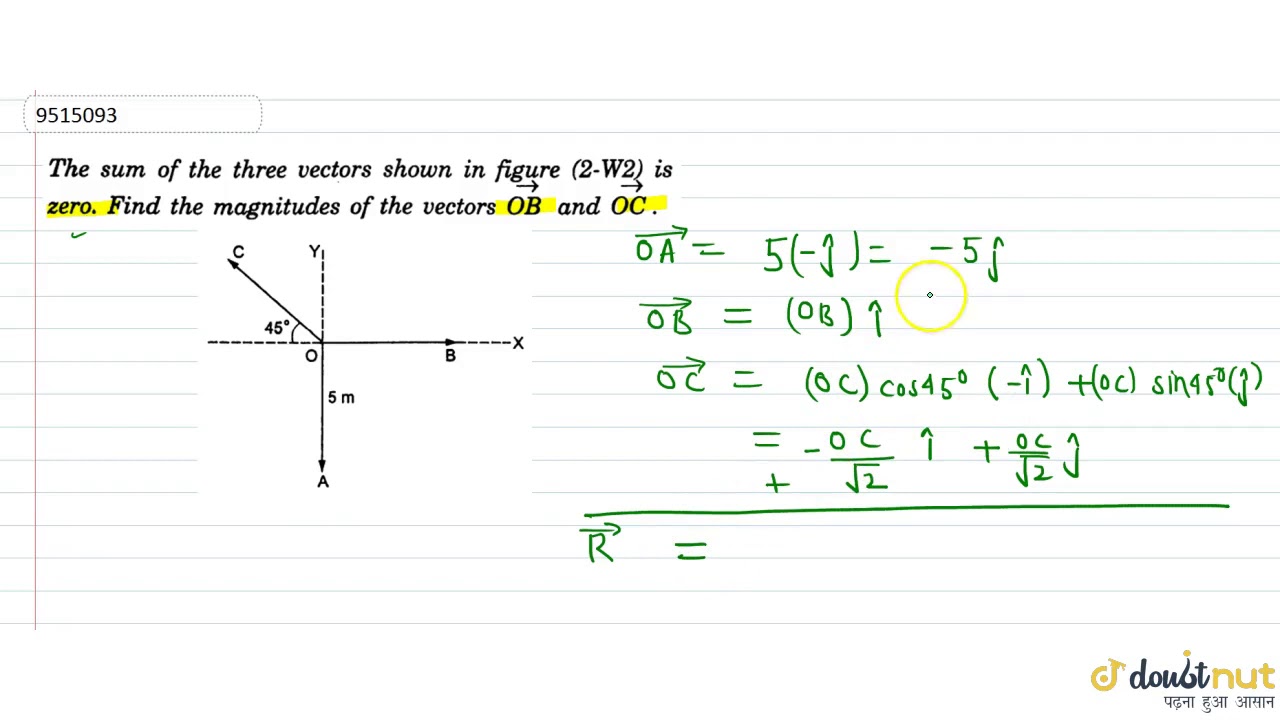 9515093
The sum of the three vectors shown in figure (2-W2) is
zero. Find the magnitudes of the vectors $\overrightarrow{OB}$ and $\overrightarrow{OC}$.
C
Y
45°
O
B
X
5 m
A
$\overrightarrow{OA}$ = 5(-ĵ) = -5ĵ
$\overrightarrow{OB}$ = (OB) î
$\overrightarrow{OC}$ = (OC) cos45° (-î) + (OC) sin45° (ĵ)
= - $\frac{OC}{\sqrt{2}}$ î + $\frac{OC}{\sqrt{2}}$ ĵ
+
$\overrightarrow{R}$ =
doubtnut
पढ़ना हुआ आसान